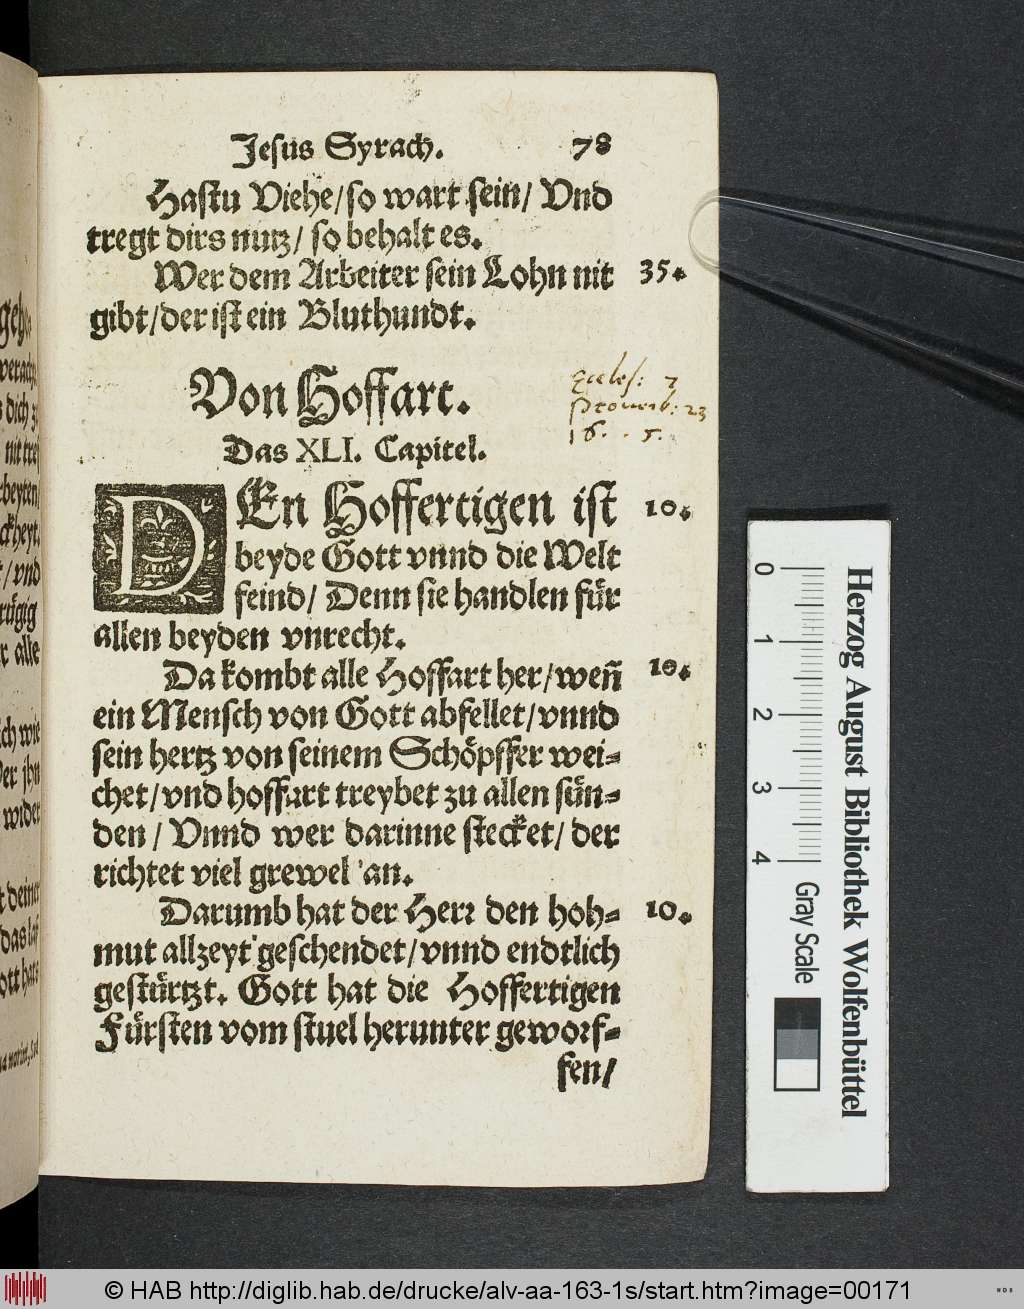 Jesus Syrach. 78
Hastu Viehe/ so wart sein/ Vnd
tregt dirs nutz/ so behalt es.
Wer dem Arbeiter sein Lohn nit 35.
gibt/ der ist ein Bluthundt.
Von Hoffart.
Eccles: 7
Prouerb: 23
16. . 5.
Das XLI. Capitel.
DEn Hoffertigen ist 10.
beyde Gott vnnd die Welt
feind/ Denn sie handlen fůr
allen beyden vnrecht.
Da kombt alle Hoffart her/ weñ 10.
ein Mensch von Gott abfellet/ vnnd
sein hertz von seinem Schöpffer wei-
chet/ vnd hoffart treybet zu allen sůn-
den/ Vnnd wer darinne stecket/ der
richtet viel grewel an.
Darumb hat der Herr den hoh- 10.
mut allzeyt geschendet/ vnnd endtlich
gestůrtzt. Gott hat die Hoffertigen
Fůrsten vom stuel herunter geworf-
fen/
0 1 2 3 4
Gray Scale
Herzog August Bibliothek Wolfenbüttel
© HAB http://diglib.hab.de/drucke/alv-aa-163-1s/start.htm?image=00171